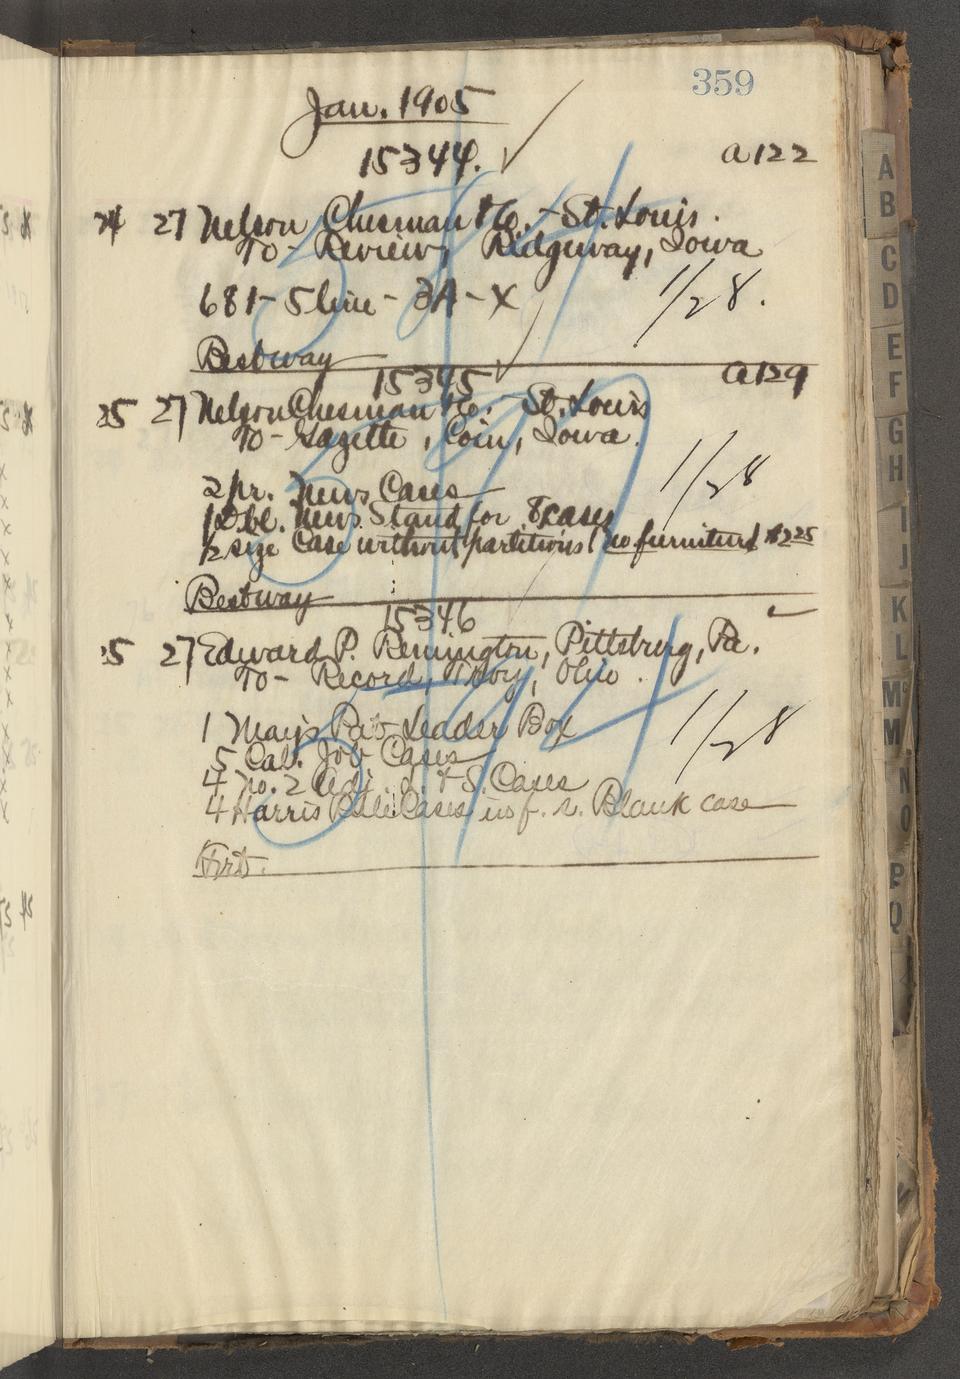 359
Jan. 1905
15344. a122
24 27 Nelson Chesman & Co. - St. Louis.
To - Review, Ridgeway, Iowa
681 - 5 line - 3A - X 1/28.
Bestway
15345 a129
25 27 Nelson Chesman & Co. - St. Louis
To - Gazette, Coin, Iowa.
2 pr. News Cases 1/28
1 Dbl. News Stand for 8 cases
1/2 size Case without partitions no furniture $2.25
Bestway
15346
25 27 Edward P. Remington, Pittsburg, Pa.
To - Record, Troy, Ohio.
1 Leader Box
5 Cal. Job Cases 1/28
4 No. 2 Adj. L. & S. Cases
4 Harris Rule Cases Blank case
Frt.
A
B
C
D
E
F
G
H
I
J
K
L
Mc
M
N
O
P
Q